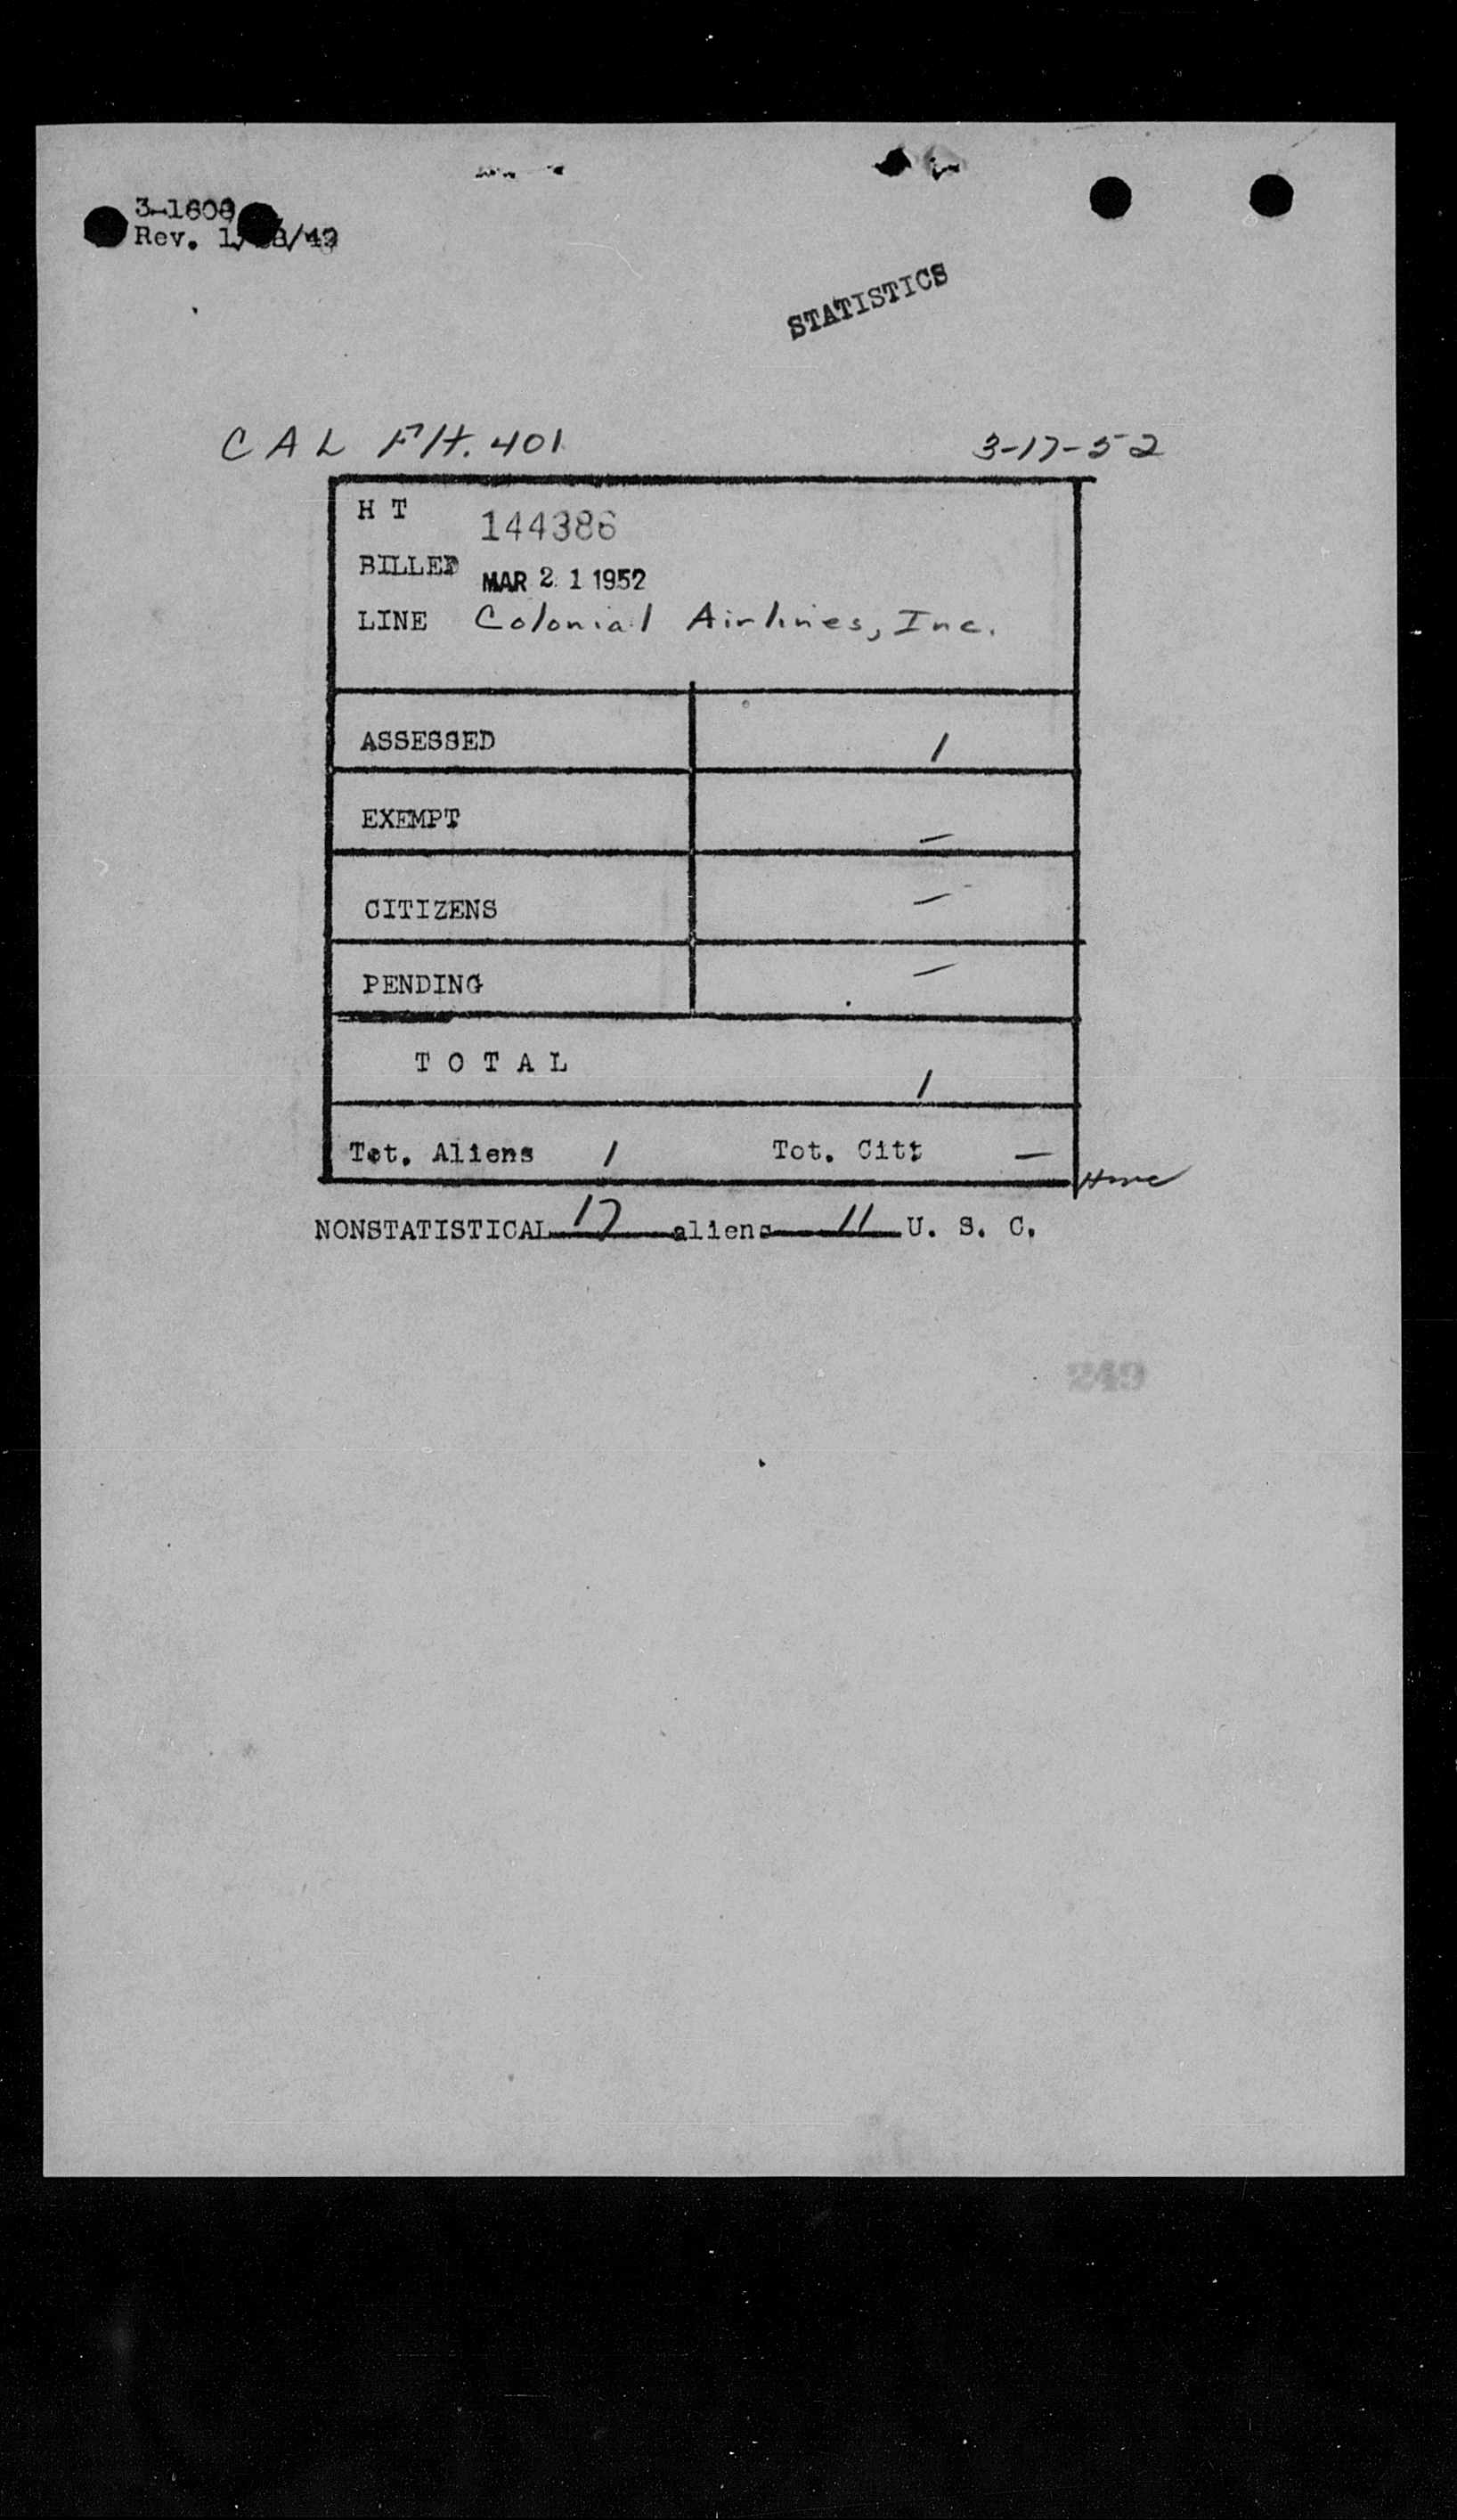 3-1608
Rev. 1/ 8/49
STATISTICS
CAL Flt. 401
3-17-52
H T 144386
BILLED MAR 21 1952
LINE Colonial Airlines, Inc.
ASSESSED 1
EXEMPT —
CITIZENS —
PENDING —
T O T A L 1
Tot. Aliens 1 Tot. Citz —
NONSTATISTICAL 17 aliens 11 U. S. C.
249